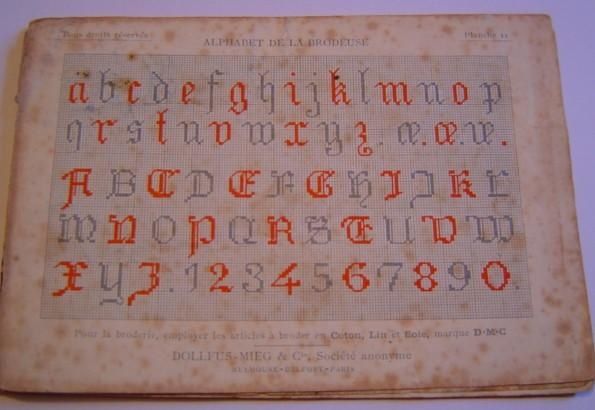 Tous droits réservés
ALPHABET DE LA BRODEUSE
Planche 11
a b c d e f g h i j k l m n o p
q r s t u v w x y z . æ . œ . æ .
A B C D E F G H I J K L
M N O P Q R S T U V W
X Y Z . 1 2 3 4 5 6 7 8 9 0 .
Pour la broderie, employer les articles à broder en Coton, Lin et Soie, marque D·M·C
DOLLFUS-MIEG & Cie, Société anonyme
MULHOUSE-BELFORT-PARIS